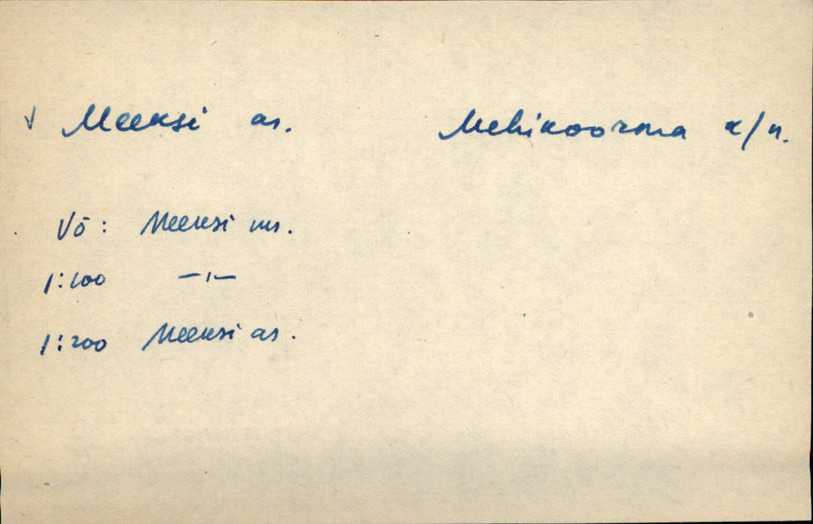 √ Meeksi as. Mehikoorma k/n.
Võ: Meeksi ms.
1:100 —"—
1:200 Meeksi as.